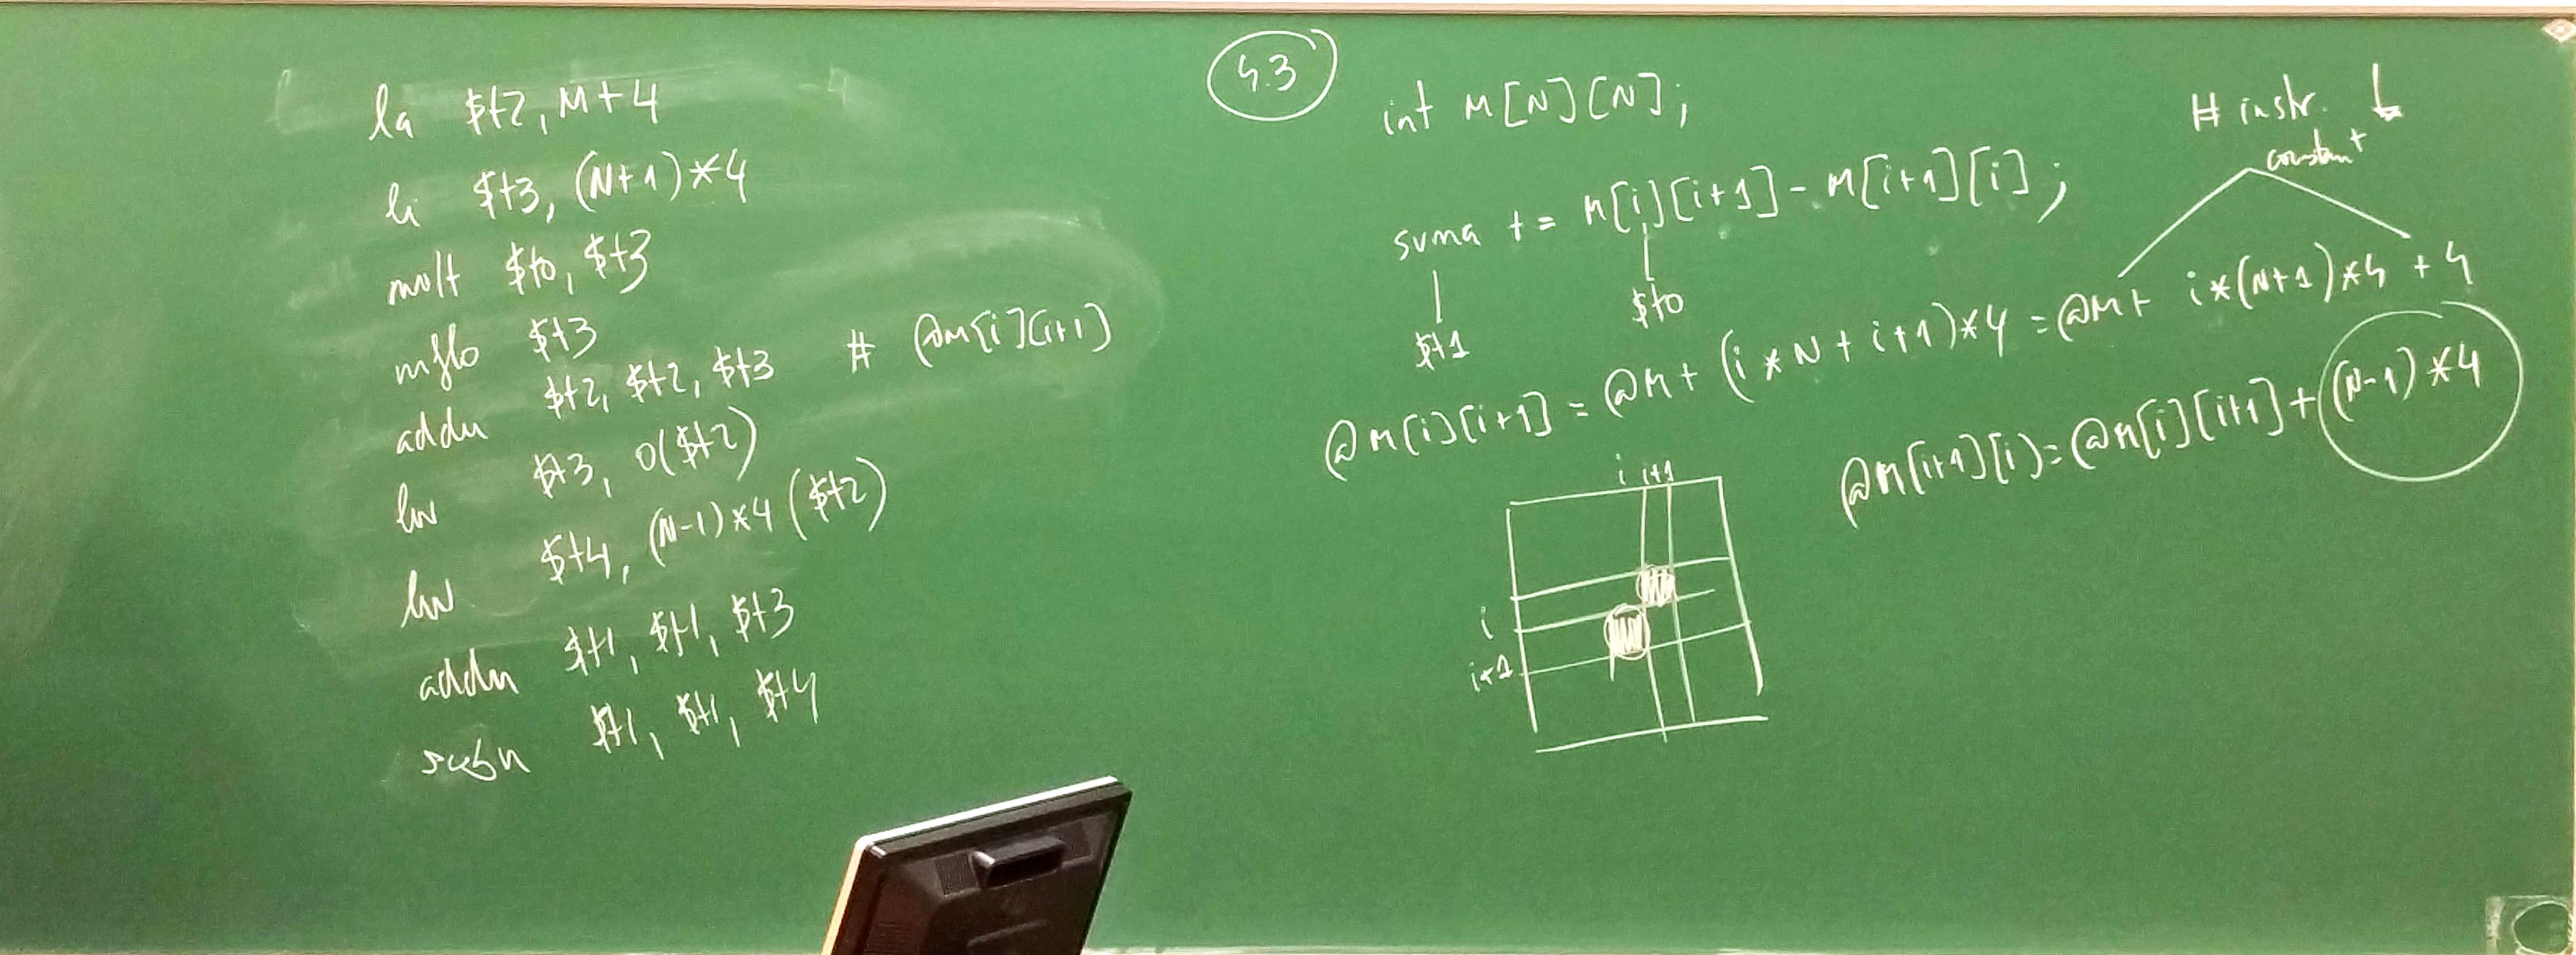 la $t2, M+4
li $t3, (N+1)*4
mult $t0, $t3
mflo $t3
addu $t2, $t2, $t3 # @M[i][i+1]
lw $t3, 0($t2)
lw $t4, (N-1)*4($t2)
addu $t1, $t1, $t3
subu $t1, $t1, $t4
4.3
int M[N][N];
suma += M[i][i+1] - M[i+1][i];
$t1
$t0
# instr. ↓
constant
@M[i][i+1] = @M + (i*N+i+1)*4 = @M + i*(N+1)*4 + 4
@M[i+1][i] = @M[i][i+1] + (N-1)*4
i i+1
i
i+1